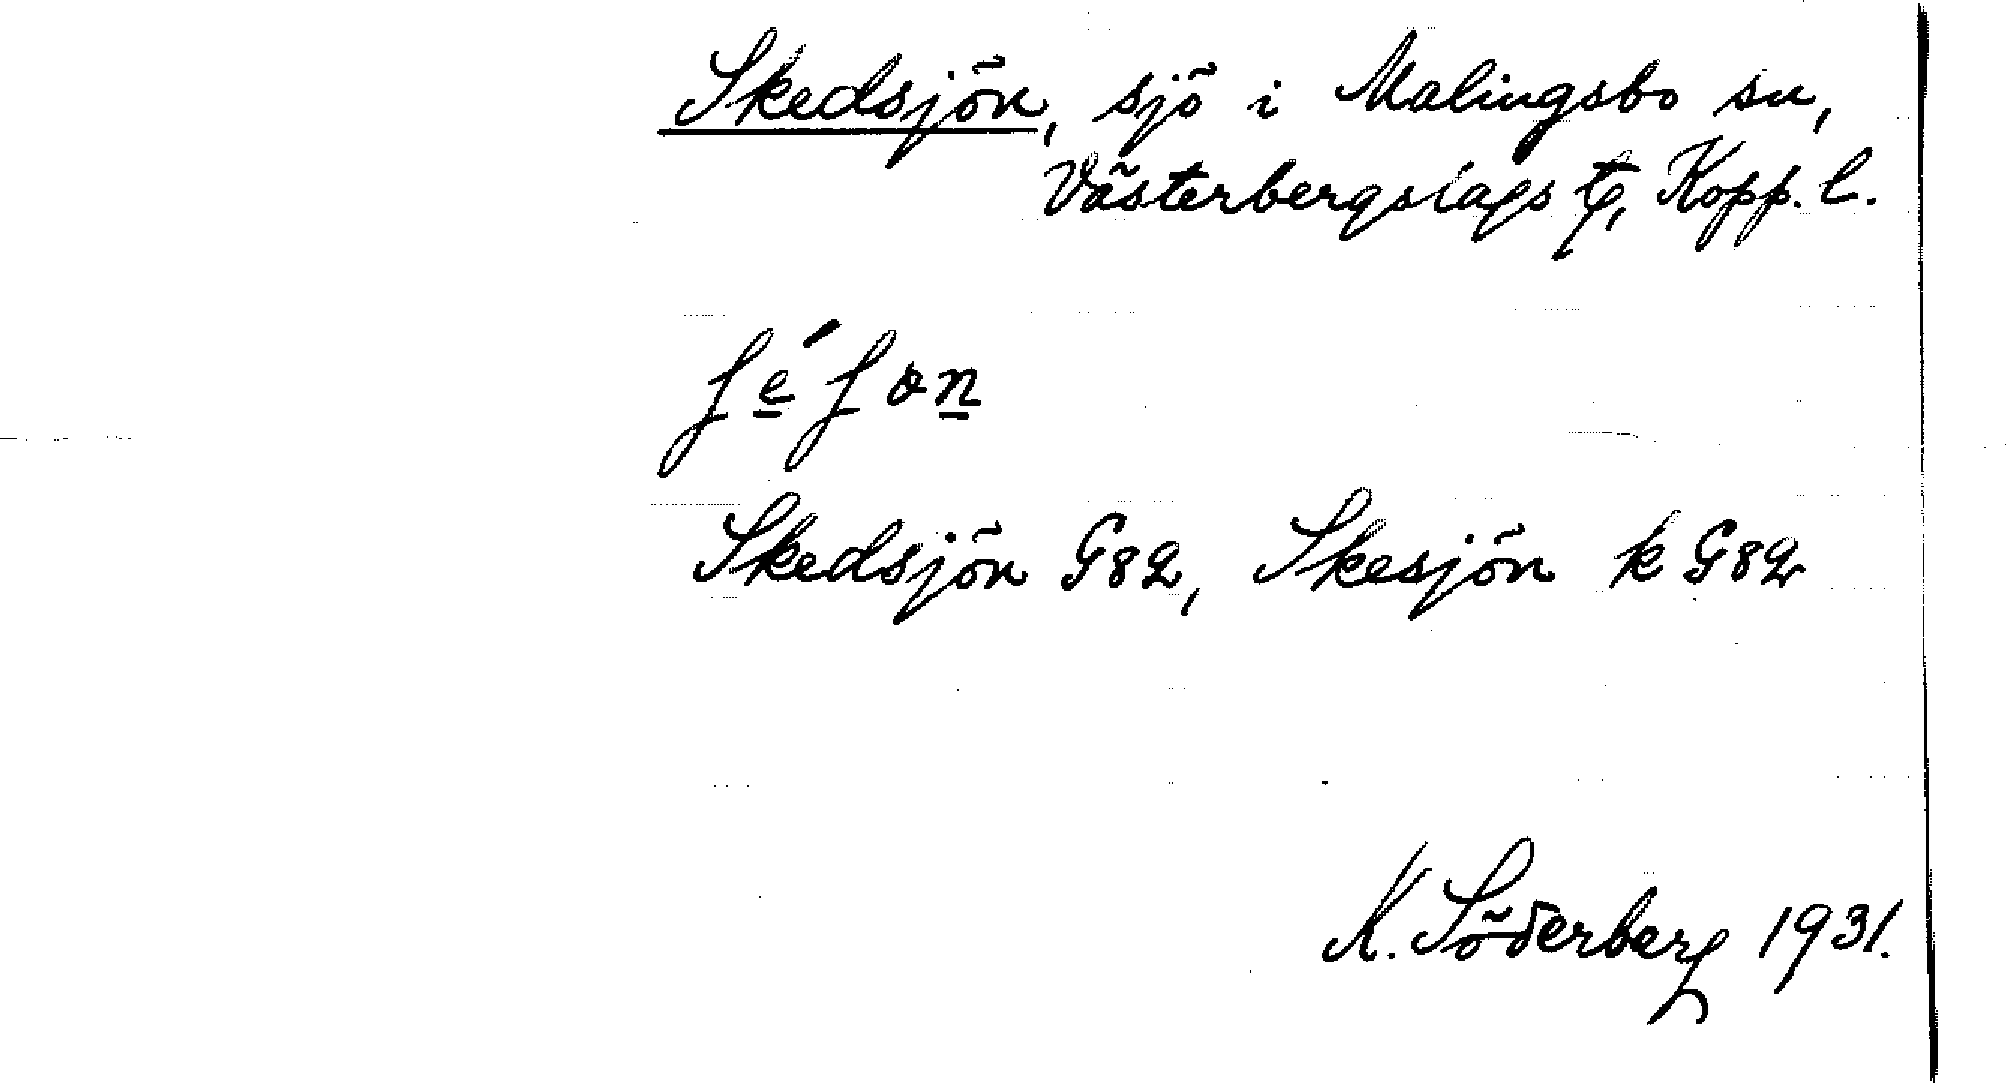 Skedsjön, sjö i Malingsbo sn,
Västerbergslags tg, Kopp. l.
Skedsjön G82, Skesjön k G82
K. Söderberg 1931.